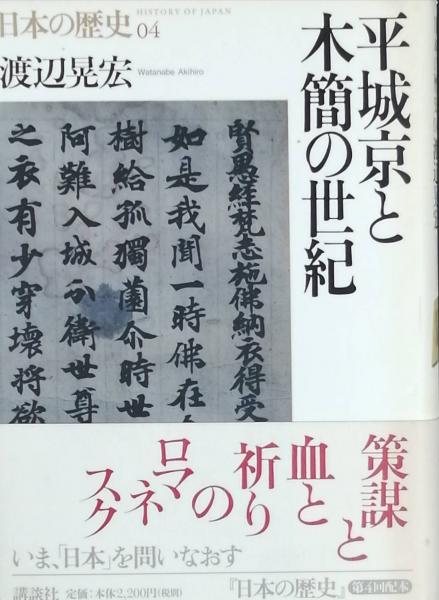 日本の歴史 04
HISTORY OF JAPAN
渡辺晃宏
Watanabe Akihiro
平城京と
木簡の世紀
賢愚経梵志施佛納衣得受
如是我聞一時佛在
樹給孤獨薗尒時世
阿難入城乞衛世尊
之衣有少穿壊将欲
策謀と
血と
祈りの
ロマネスク
いま、「日本」を問いなおす
講談社 定価:本体2,200円(税別)
『日本の歴史』第4回配本